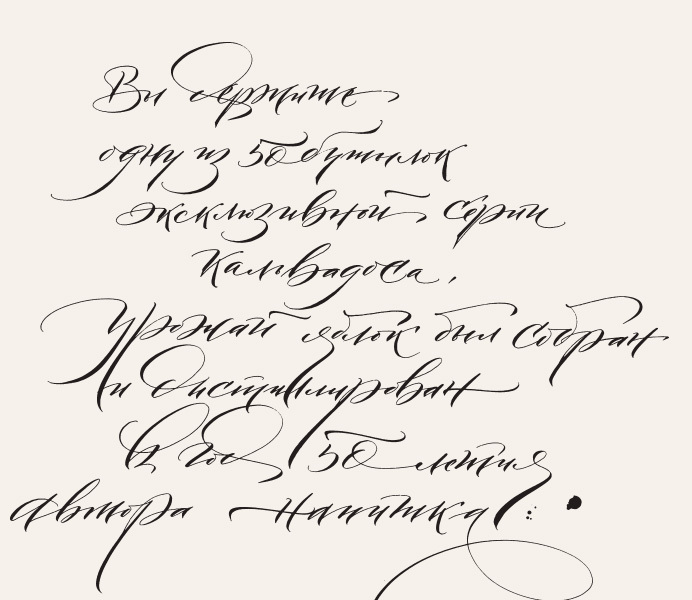 Вы держите
одну из 50 бутылок
эксклюзивной серии
Кальвадоса,
Урожай яблок был собран
и дистиллирован
в год 50 летия
Автора Напитка.